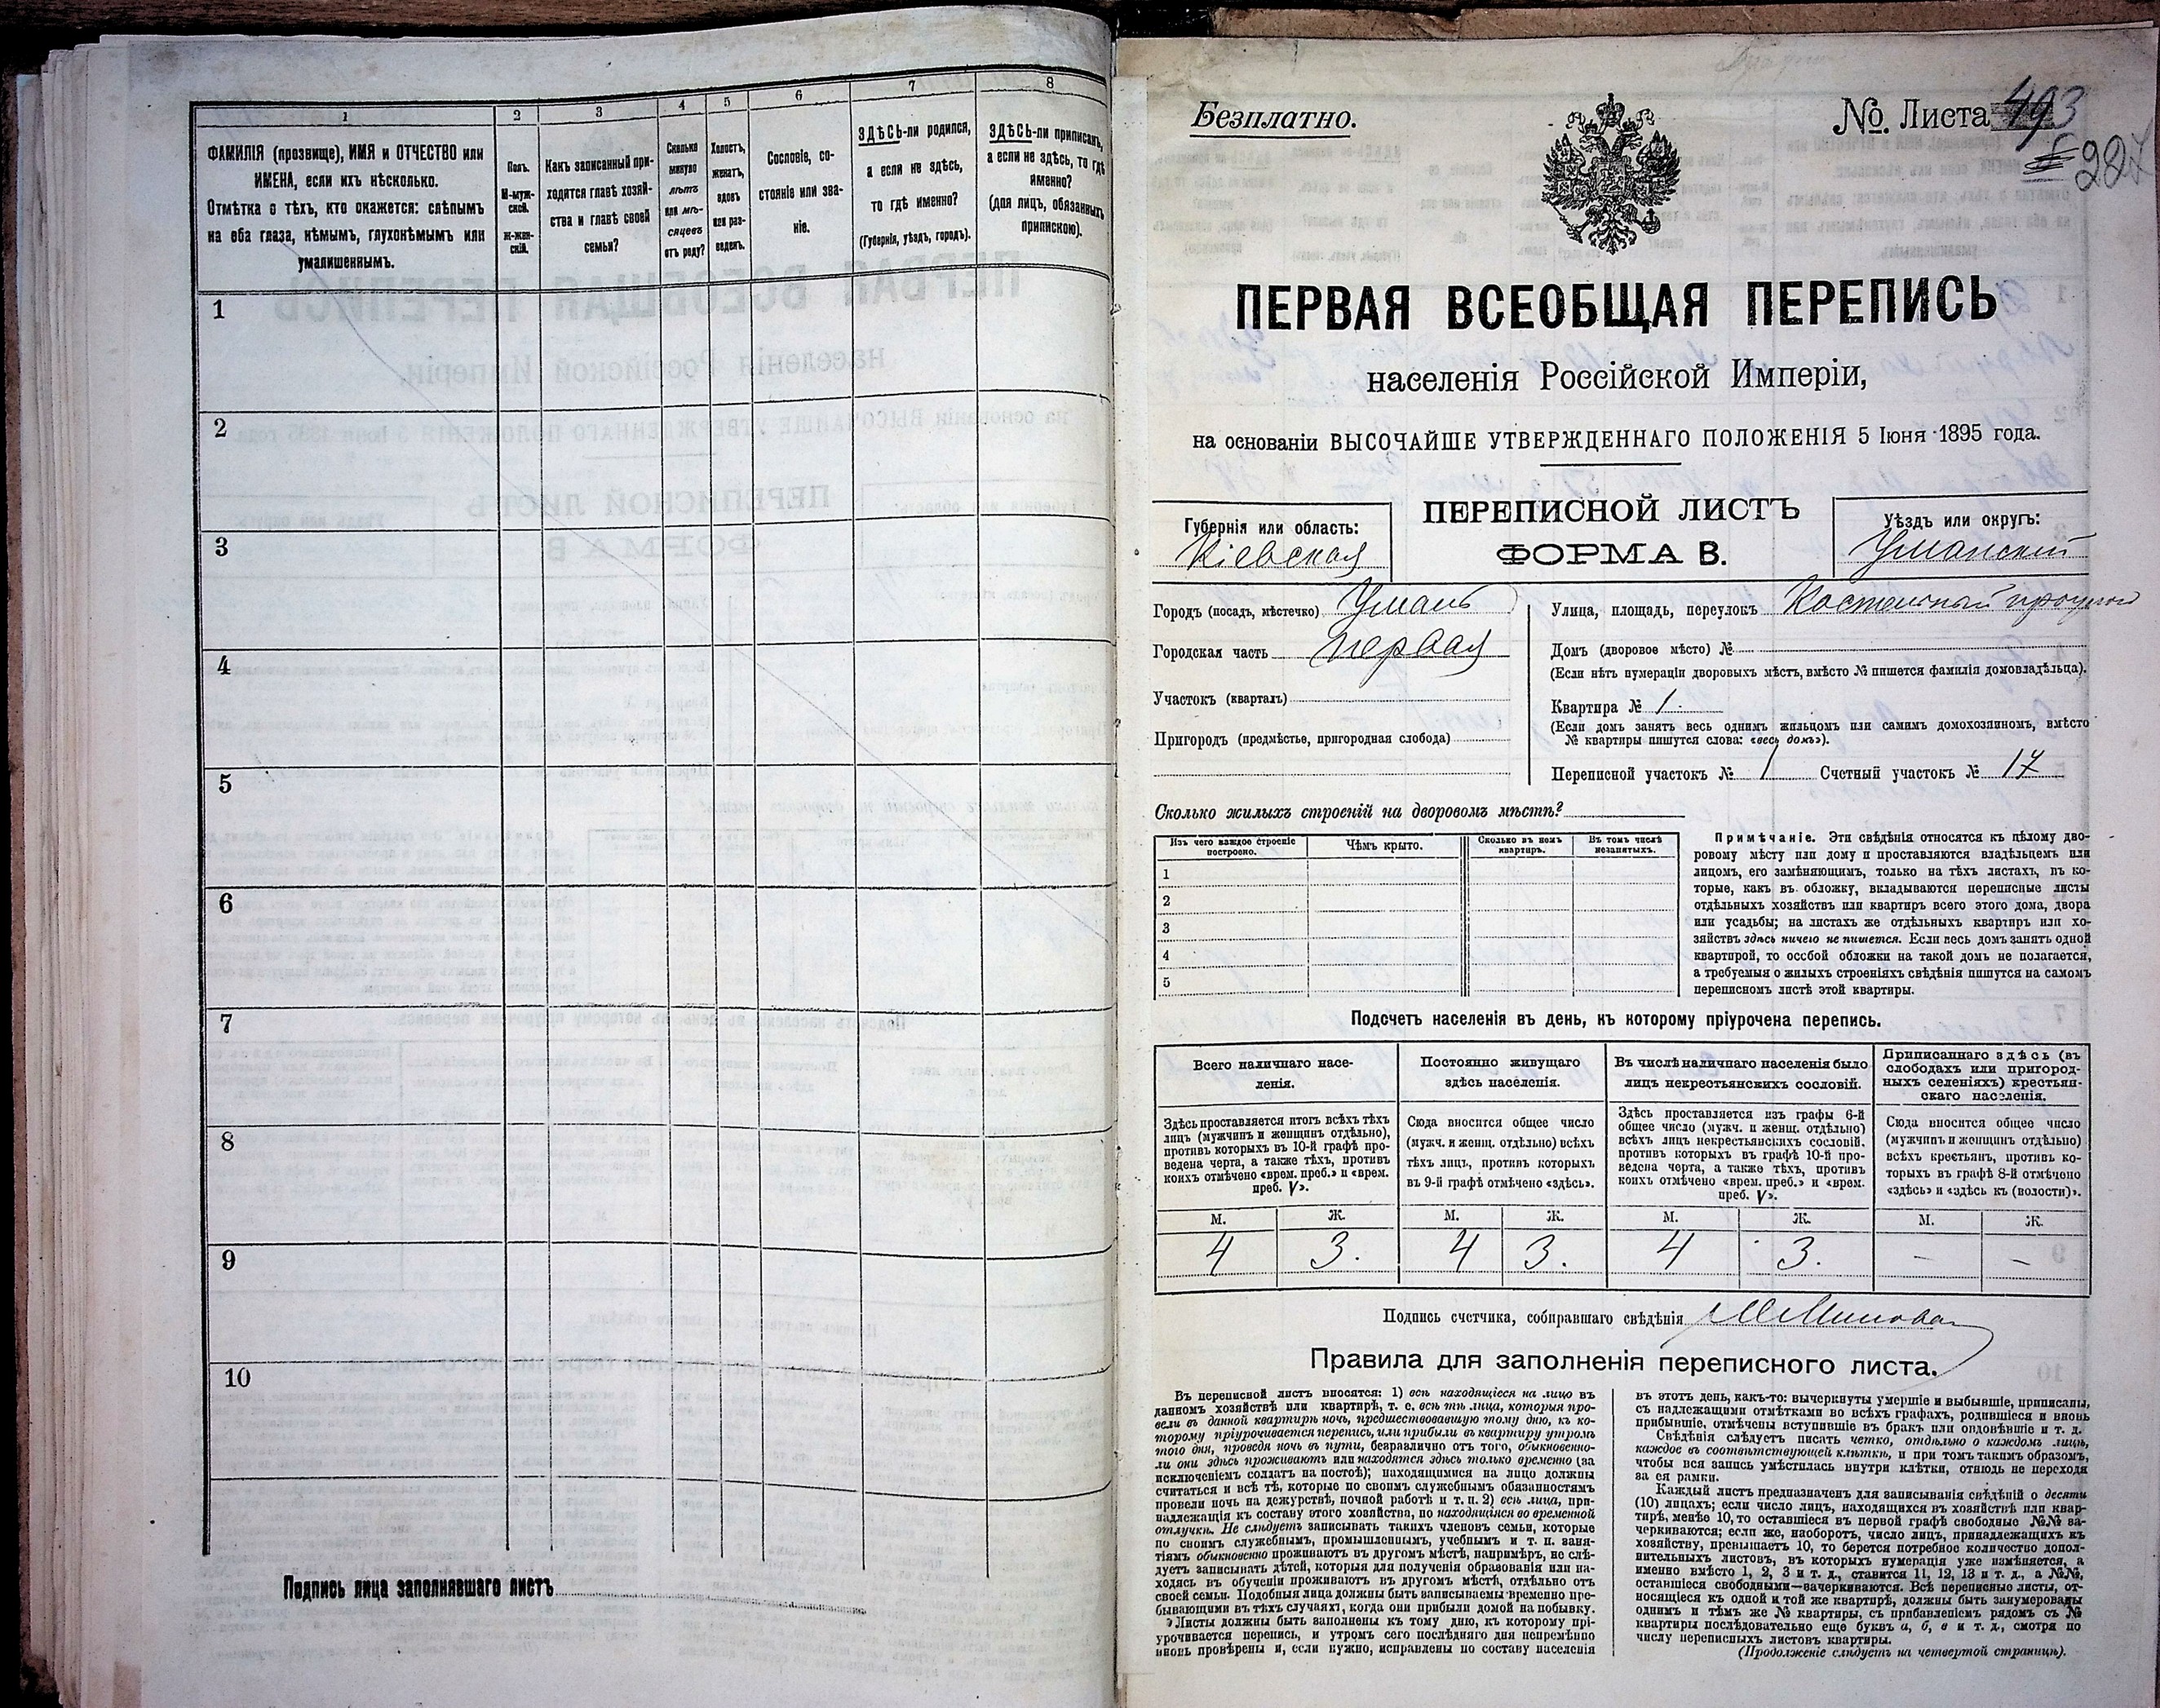 1
2
3
4
5
6
7
8
ФАМИЛІЯ (прозвище), ИМЯ и ОТЧЕСТВО или
ИМЕНА, если ихъ нѣсколько.
Отмѣтка о тѣхъ, кто окажется: слѣпымъ
на оба глаза, нѣмымъ, глухонѣмымъ или
умалишеннымъ.
Полъ.
М-муж-
ской.
Ж-жен-
скій.
Какъ записанный при-
ходится главѣ хозяй-
ства и главѣ своей
семьи?
Сколько
минуло
лѣтъ
или мѣ-
сяцевъ
отъ роду?
Холостъ,
женатъ,
вдовъ
или раз-
веденъ.
Сословіе, со-
стояніе или зва-
ніе.
ЗДѢСЬ-ли родился,
а если не здѣсь,
то гдѣ именно?
(Губернія, уѣздъ, городъ).
ЗДѢСЬ-ли приписанъ,
а если не здѣсь, то гдѣ
именно?
(для лицъ, обязанныхъ
припискою).
1
2
3
4
5
6
7
8
9
10
Подпись лица заполнявшаго листъ
Безплатно.
№. Листа 493
227
ПЕРВАЯ ВСЕОБЩАЯ ПЕРЕПИСЬ
населенія Россійской Имперіи,
на основаніи ВЫСОЧАЙШЕ УТВЕРЖДЕННАГО ПОЛОЖЕНІЯ 5 Іюня 1895 года.
Губернія или область:
Кіевская
ПЕРЕПИСНОЙ ЛИСТЪ
ФОРМА В.
Уѣздъ или округъ:
Уманскій
Городъ (посадъ, мѣстечко) Умань
Городская часть первая
Участокъ (кварталъ)
Пригородъ (предмѣстье, пригородная слобода)
Улица, площадь, переулокъ Костельный
Домъ (дворовое мѣсто) №
(Если нѣтъ нумераціи дворовыхъ мѣстъ, вмѣсто № пишется фамилія домовладѣльца).
Квартира № 1.
(Если домъ занятъ весь однимъ жильцомъ или самимъ домохозяиномъ, вмѣсто
№ квартиры пишутся слова: «весь домъ»).
Переписной участокъ № 1 Счетный участокъ № 17
Сколько жилыхъ строеній на дворовомъ мѣстѣ?
Изъ чего каждое строеніе
построено.
Чѣмъ крыто.
Сколько въ немъ
квартиръ.
Въ томъ числѣ
незанятыхъ.
1
2
3
4
5
Примѣчаніе. Эти свѣдѣнія относятся къ цѣлому дво-
ровому мѣсту или дому и проставляются владѣльцемъ или
лицомъ, его замѣняющимъ, только на тѣхъ листахъ, въ ко-
торые, какъ въ обложку, вкладываются переписные листы
отдѣльныхъ хозяйствъ или квартиръ всего этого дома, двора
или усадьбы; на листахъ же отдѣльныхъ квартиръ или хо-
зяйствъ здѣсь ничего не пишется. Если весь домъ занятъ одной
квартирой, то особой обложки на такой домъ не полагается,
а требуемыя о жилыхъ строеніяхъ свѣдѣнія пишутся на самомъ
переписномъ листѣ этой квартиры.
Подсчетъ населенія въ день, къ которому пріурочена перепись.
Всего наличнаго насе-
ленія.
Здѣсь проставляется итогъ всѣхъ тѣхъ
лицъ (мужчинъ и женщинъ отдѣльно),
противъ которыхъ въ 10-й графѣ про-
ведена черта, а также тѣхъ, противъ
коихъ отмѣчено «врем. преб.» и «врем.
преб. V».
Постоянно живущаго
здѣсь населенія.
Сюда вносится общее число
(мужч. и женщ. отдѣльно) всѣхъ
тѣхъ лицъ, противъ которыхъ
въ 9-й графѣ отмѣчено «здѣсь».
Въ числѣ наличнаго населенія было
лицъ некрестьянскихъ сословій.
Здѣсь проставляется изъ графы 6-й
общее число (мужч. и женщ. отдѣльно)
всѣхъ лицъ некрестьянскихъ сословій,
противъ которыхъ въ графѣ 10-й про-
ведена черта, а также тѣхъ, противъ
коихъ отмѣчено «врем. преб.» и «врем.
преб. V».
Приписаннаго здѣсь (въ
слободахъ или пригород-
ныхъ селеніяхъ) крестьян-
скаго населенія.
Сюда вносится общее число
(мужчинъ и женщинъ отдѣльно)
всѣхъ крестьянъ, противъ ко-
торыхъ въ графѣ 8-й отмѣчено
«здѣсь» и «здѣсь къ (волости)».
М. Ж. М. Ж. М. Ж. М. Ж.
4 3. 4 3. 4 3. – –
Подпись счетчика, собиравшаго свѣдѣнія
Правила для заполненія переписного листа.
Въ переписной листъ вносятся: 1) всѣ находящіеся на лицо въ
данномъ хозяйствѣ или квартирѣ, т. е. всѣ тѣ лица, которыя про-
вели въ данной квартирѣ ночь, предшествовавшую тому дню, къ ко-
торому пріурочивается перепись, или прибыли въ квартиру утромъ
того дня, проведя ночь въ пути, безразлично отъ того, обыкновенно-
ли они здѣсь проживаютъ или находятся здѣсь только временно (за
исключеніемъ солдатъ на постоѣ); находящимися на лицо должны
считаться и всѣ тѣ, которые по своимъ служебнымъ обязанностямъ
провели ночь на дежурствѣ, ночной работѣ и т. п. 2) всѣ лица, при-
надлежащія къ составу этого хозяйства, но находящіяся во временной
отлучкѣ. Не слѣдуетъ записывать такихъ членовъ семьи, которые
по своимъ служебнымъ, промышленнымъ, учебнымъ и т. п. заня-
тіямъ обыкновенно проживаютъ въ другомъ мѣстѣ, напримѣръ, не слѣ-
дуетъ записывать дѣтей, которыя для полученія образованія или на-
ходясь въ обученіи проживаютъ въ другомъ мѣстѣ, отдѣльно отъ
своей семьи. Подобныя лица должны быть записываемы временно пре-
бывающими въ тѣхъ случаяхъ, когда они прибыли домой на побывку.
Листы должны быть заполнены къ тому дню, къ которому прі-
урочивается перепись, и утромъ сего послѣдняго дня непремѣнно
вновь провѣрены и, если нужно, исправлены по составу населенія
въ этотъ день, какъ-то: вычеркнуты умершіе и выбывшіе, приписаны,
съ надлежащими отмѣтками во всѣхъ графахъ, родившіеся и вновь
прибывшіе, отмѣчены вступившіе въ бракъ или овдовѣвшіе и т. д.
Свѣдѣнія слѣдуетъ писать четко, отдѣльно о каждомъ лицѣ,
каждое въ соотвѣтствующей клѣткѣ, и при томъ такимъ образомъ,
чтобы вся запись умѣстилась внутри клѣтки, отнюдь не переходя
за ея рамки.
Каждый листъ предназначенъ для записыванія свѣдѣній о десяти
(10) лицахъ; если число лицъ, находящихся въ хозяйствѣ или квар-
тирѣ, менѣе 10, то оставшіеся въ первой графѣ свободные №№ за-
черкиваются; если же, наоборотъ, число лицъ, принадлежащихъ къ
хозяйству, превышаетъ 10, то берется потребное количество допол-
нительныхъ листовъ, въ которыхъ нумерація уже измѣняется, а
именно вмѣсто 1, 2, 3 и т. д., ставится 11, 12, 13 и т. д., а №№,
оставшіеся свободными—зачеркиваются. Всѣ переписные листы, от-
носящіеся къ одной и той же квартирѣ, должны быть занумерованы
однимъ и тѣмъ же № квартиры, съ прибавленіемъ рядомъ съ №
квартиры послѣдовательно еще буквъ а, б, в и т. д., смотря по
числу переписныхъ листовъ квартиры.
(Продолженіе слѣдуетъ на четвертой страницѣ).